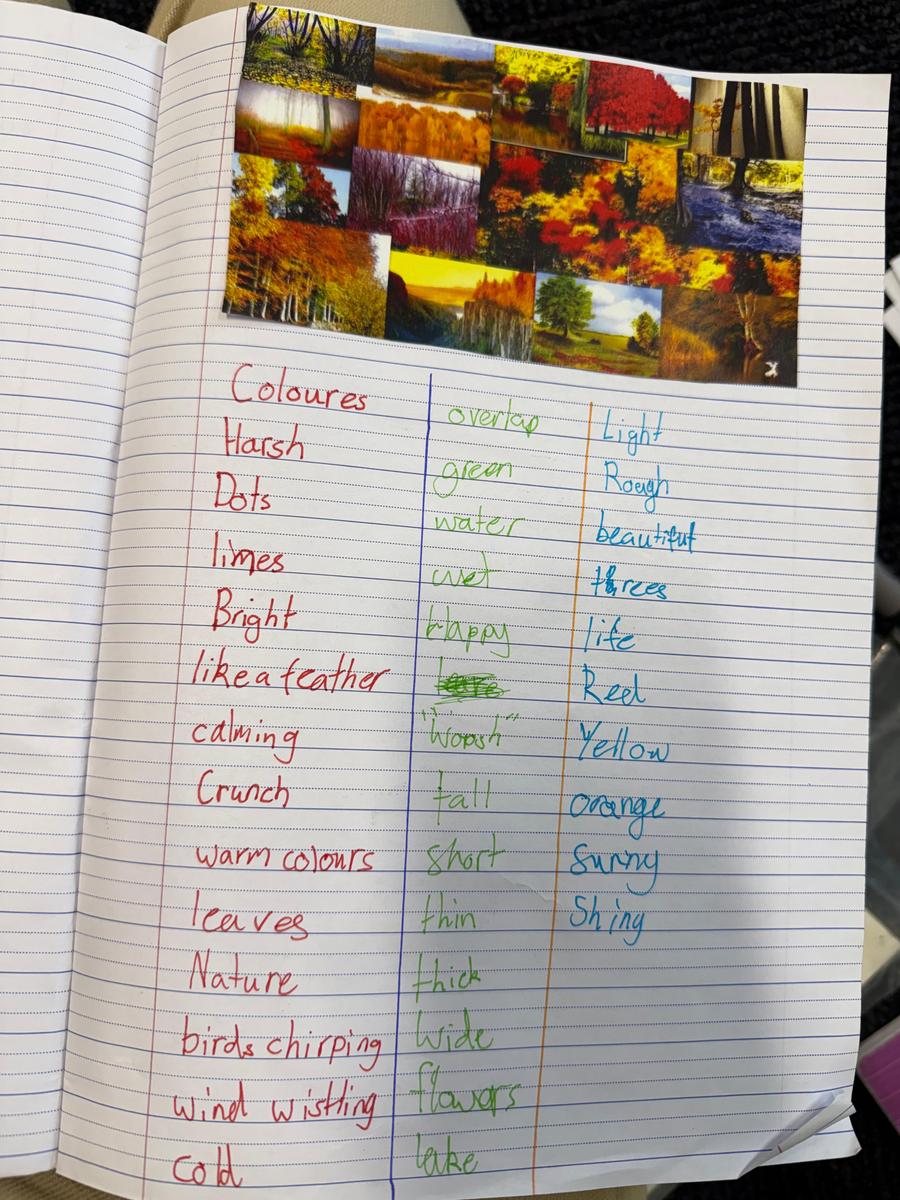 Coloures
Harsh
Dots
limes
Bright
like a feather
calming
Crunch
warm colours
leaves
Nature
birds chirping
wind wistling
cold
overlap
green
water
wet
Happy
"Woosh"
tall
short
thin
thick
Wide
flowers
lake
Light
Rough
beautiful
threes
life
Red
Yellow
orange
Sunny
Shing